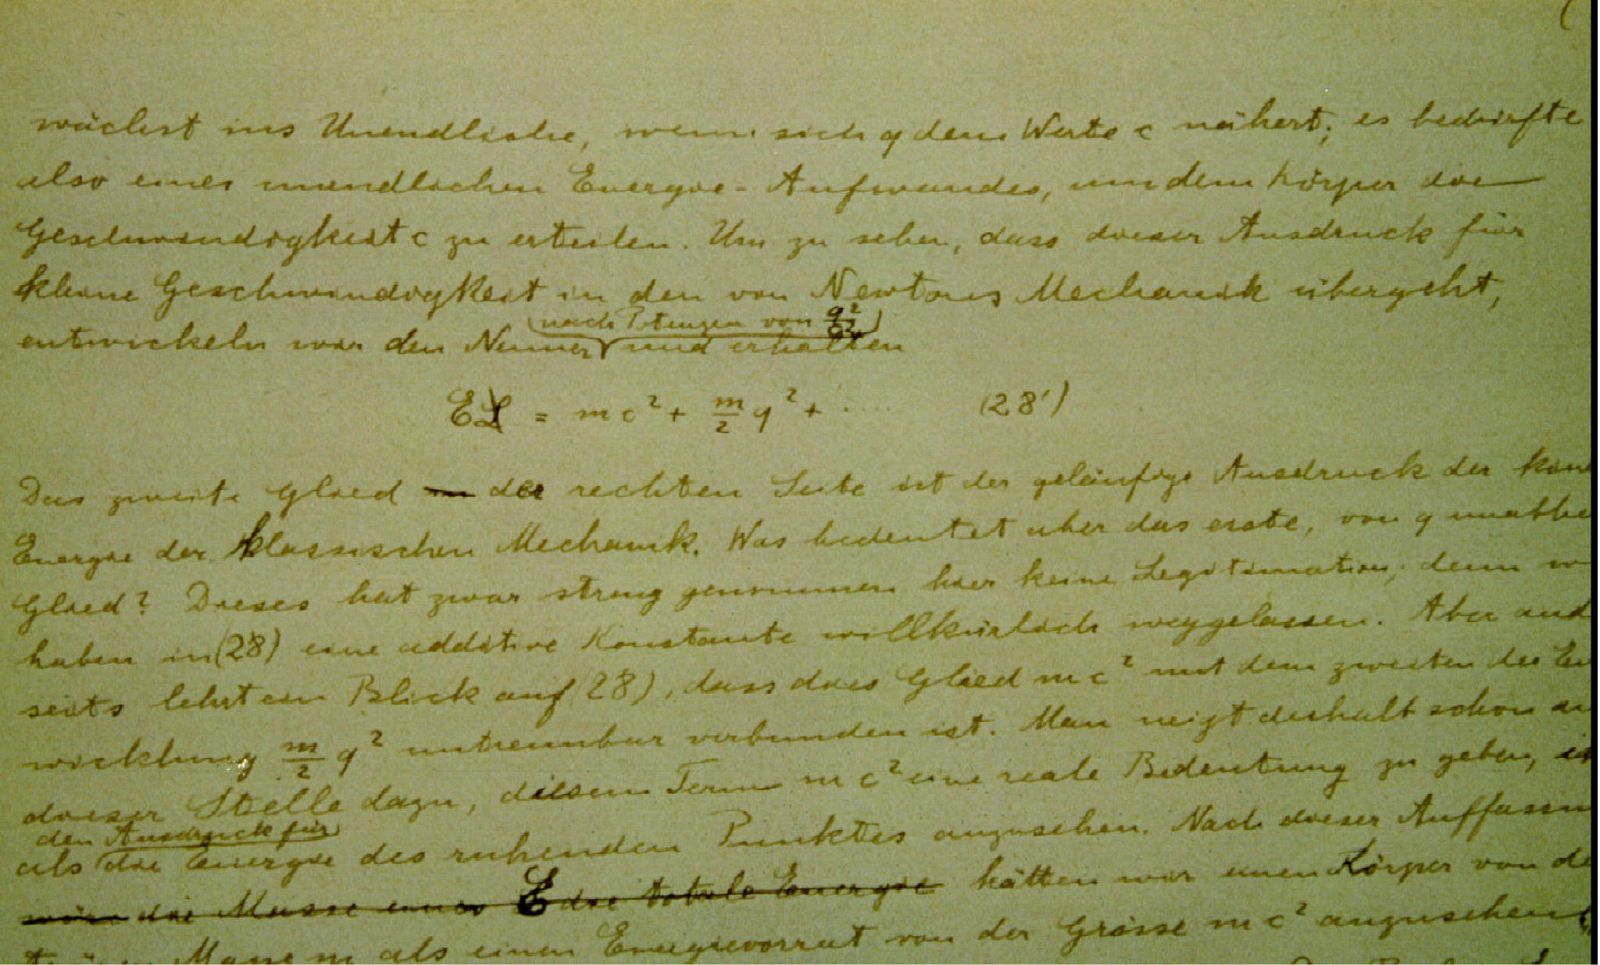 wächst ins Unendliche, wenn sich q dem Werte c nähert; es bedürfte
also eines unendlichen Energie-Aufwandes, um dem Körper die
Geschwindigkeit c zu erteilen. Um zu sehen, dass dieser Ausdruck für
kleine Geschwindigkeit in den von Newtons Mechanik übergeht,
nach Potenzen von q²/c²
entwickeln wir den Nenner und erhalten
E = mc² + m/2 q² + .... (28')
Das zweite Glied der rechten Seite ist der geläufige Ausdruck der kine
Energie der klassischen Mechanik. Was bedeutet aber das erste, von q unabhä
Glied? Dieses hat zwar streng genommen hier keine Legitimation; denn w
haben in (28) eine additive Konstante willkürlich weggelassen. Aber and
seits lehrt ein Blick auf (28), dass das Glied mc² mit dem zweiten der En
wicklung m/2 q² untrennbar verbunden ist. Man neigt deshalb schon an
dieser Stelle dazu, diesem Term mc² eine reale Bedeutung zu geben, ih
den Ausdruck für
als die Energie des ruhenden Punktes anzusehen. Nach dieser Auffassun
wäre die Masse einer E die totale Energie hätten wir einen Körper von de
Masse m als einen Energievorrat von der Grösse mc² anzusehen